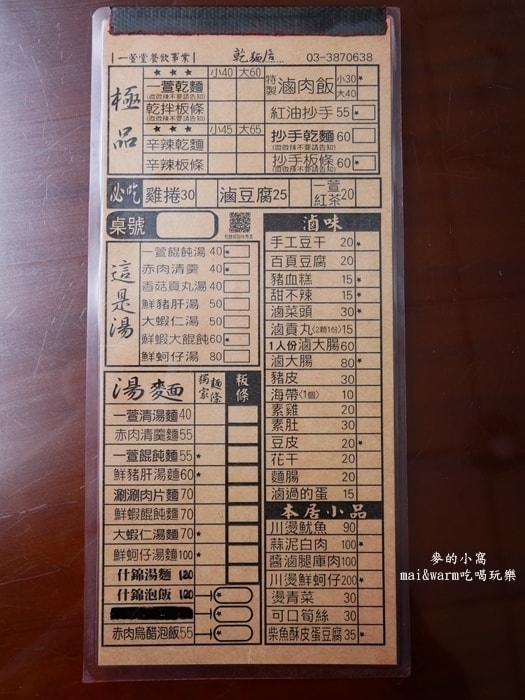 |一萱堂餐飲事業| 乾麵店 03-3870638
極品
★ ★ ★ 小40 大60
一萱乾麵
(微微辣不要請告知)
乾拌板條
(微微辣不要請告知)
★ ★ ★ 小45 大65
辛辣乾麵
辛辣板條
特製 滷肉飯 小30* 大40
紅油抄手 55 *
抄手乾麵 60
(微微辣不要請告知)
抄手板條 60 *
(微微辣不要請告知)
必吃 雞捲30 滷豆腐25 一萱紅茶20
桌號
這是湯
一萱餛飩湯 40
赤肉清羹 40 *
香菇貢丸湯 40
鮮豬肝湯 50
大蝦仁湯 50
鮮蝦大餛飩 60 *
鮮蚵仔湯 80
湯麵 獨家麵條 粄條
一萱清湯麵 40
赤肉清羹麵 55
一萱餛飩麵 55 *
鮮豬肝湯麵 60 *
涮涮肉片麵 70
鮮蝦餛飩麵 70
大蝦仁湯麵 70 *
鮮蚵仔湯麵 100 *
什錦湯麵 120
什錦泡飯 120 *
赤肉烏醋泡飯 55 *
滷味
手工豆干 20 *
百頁豆腐 20
豬血糕 15 *
甜不辣 15 *
滷菜頭 30 *
滷貢丸(2顆1份) 15
1人份滷大腸 60
滷大腸 80 *
豬皮 30
海帶(1個) 10
素雞 20
素肚 30
豆皮 20 *
花干 20
麵腸 20
滷過的蛋 15
本居小品
川燙魷魚 90
蒜泥白肉 100 *
醬滷腿庫肉 100
川燙鮮蚵仔 200 *
燙青菜 30
可口筍絲 30
柴魚酥皮蛋豆腐 35 *
麥的小窩
mai&warm吃喝玩樂